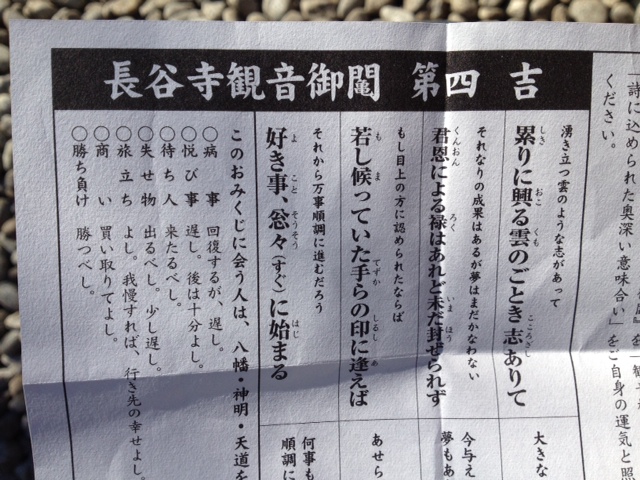 長谷寺観音御鬮 第四 吉
詩に込められた奥深い意味合い」を
ください。
湧き立つ雲のような志があって
累りに興る雲のごとき志ありて
しき おこ くも こころざし
それなりの成果はあるが夢はまだかなわない
君恩による禄はあれど未だ封ぜられず
くんおん ろく いま ほう
もし目上の方に認められたならば
若し候っていた手らの印に逢えば
も ま てずか しるし あ
それから万事順調に進むだろう
好き事、忩々(すぐ)に始まる
よ こと そうそう はじ
大きな
今与え
夢もあ
あせら
何事も
順調に
このおみくじに会う人は、八幡・神明・天道を
○病事 回復するが、遅し。
○悦び事 遅し。後は十分よし。
○待ち人 来たるべし。
○失せ物 出るべし。少し遅し。
○旅立ち よし。我慢すれば、行き先の幸せよし。
○商い 買い取りてよし。
○勝ち負け 勝つべし。